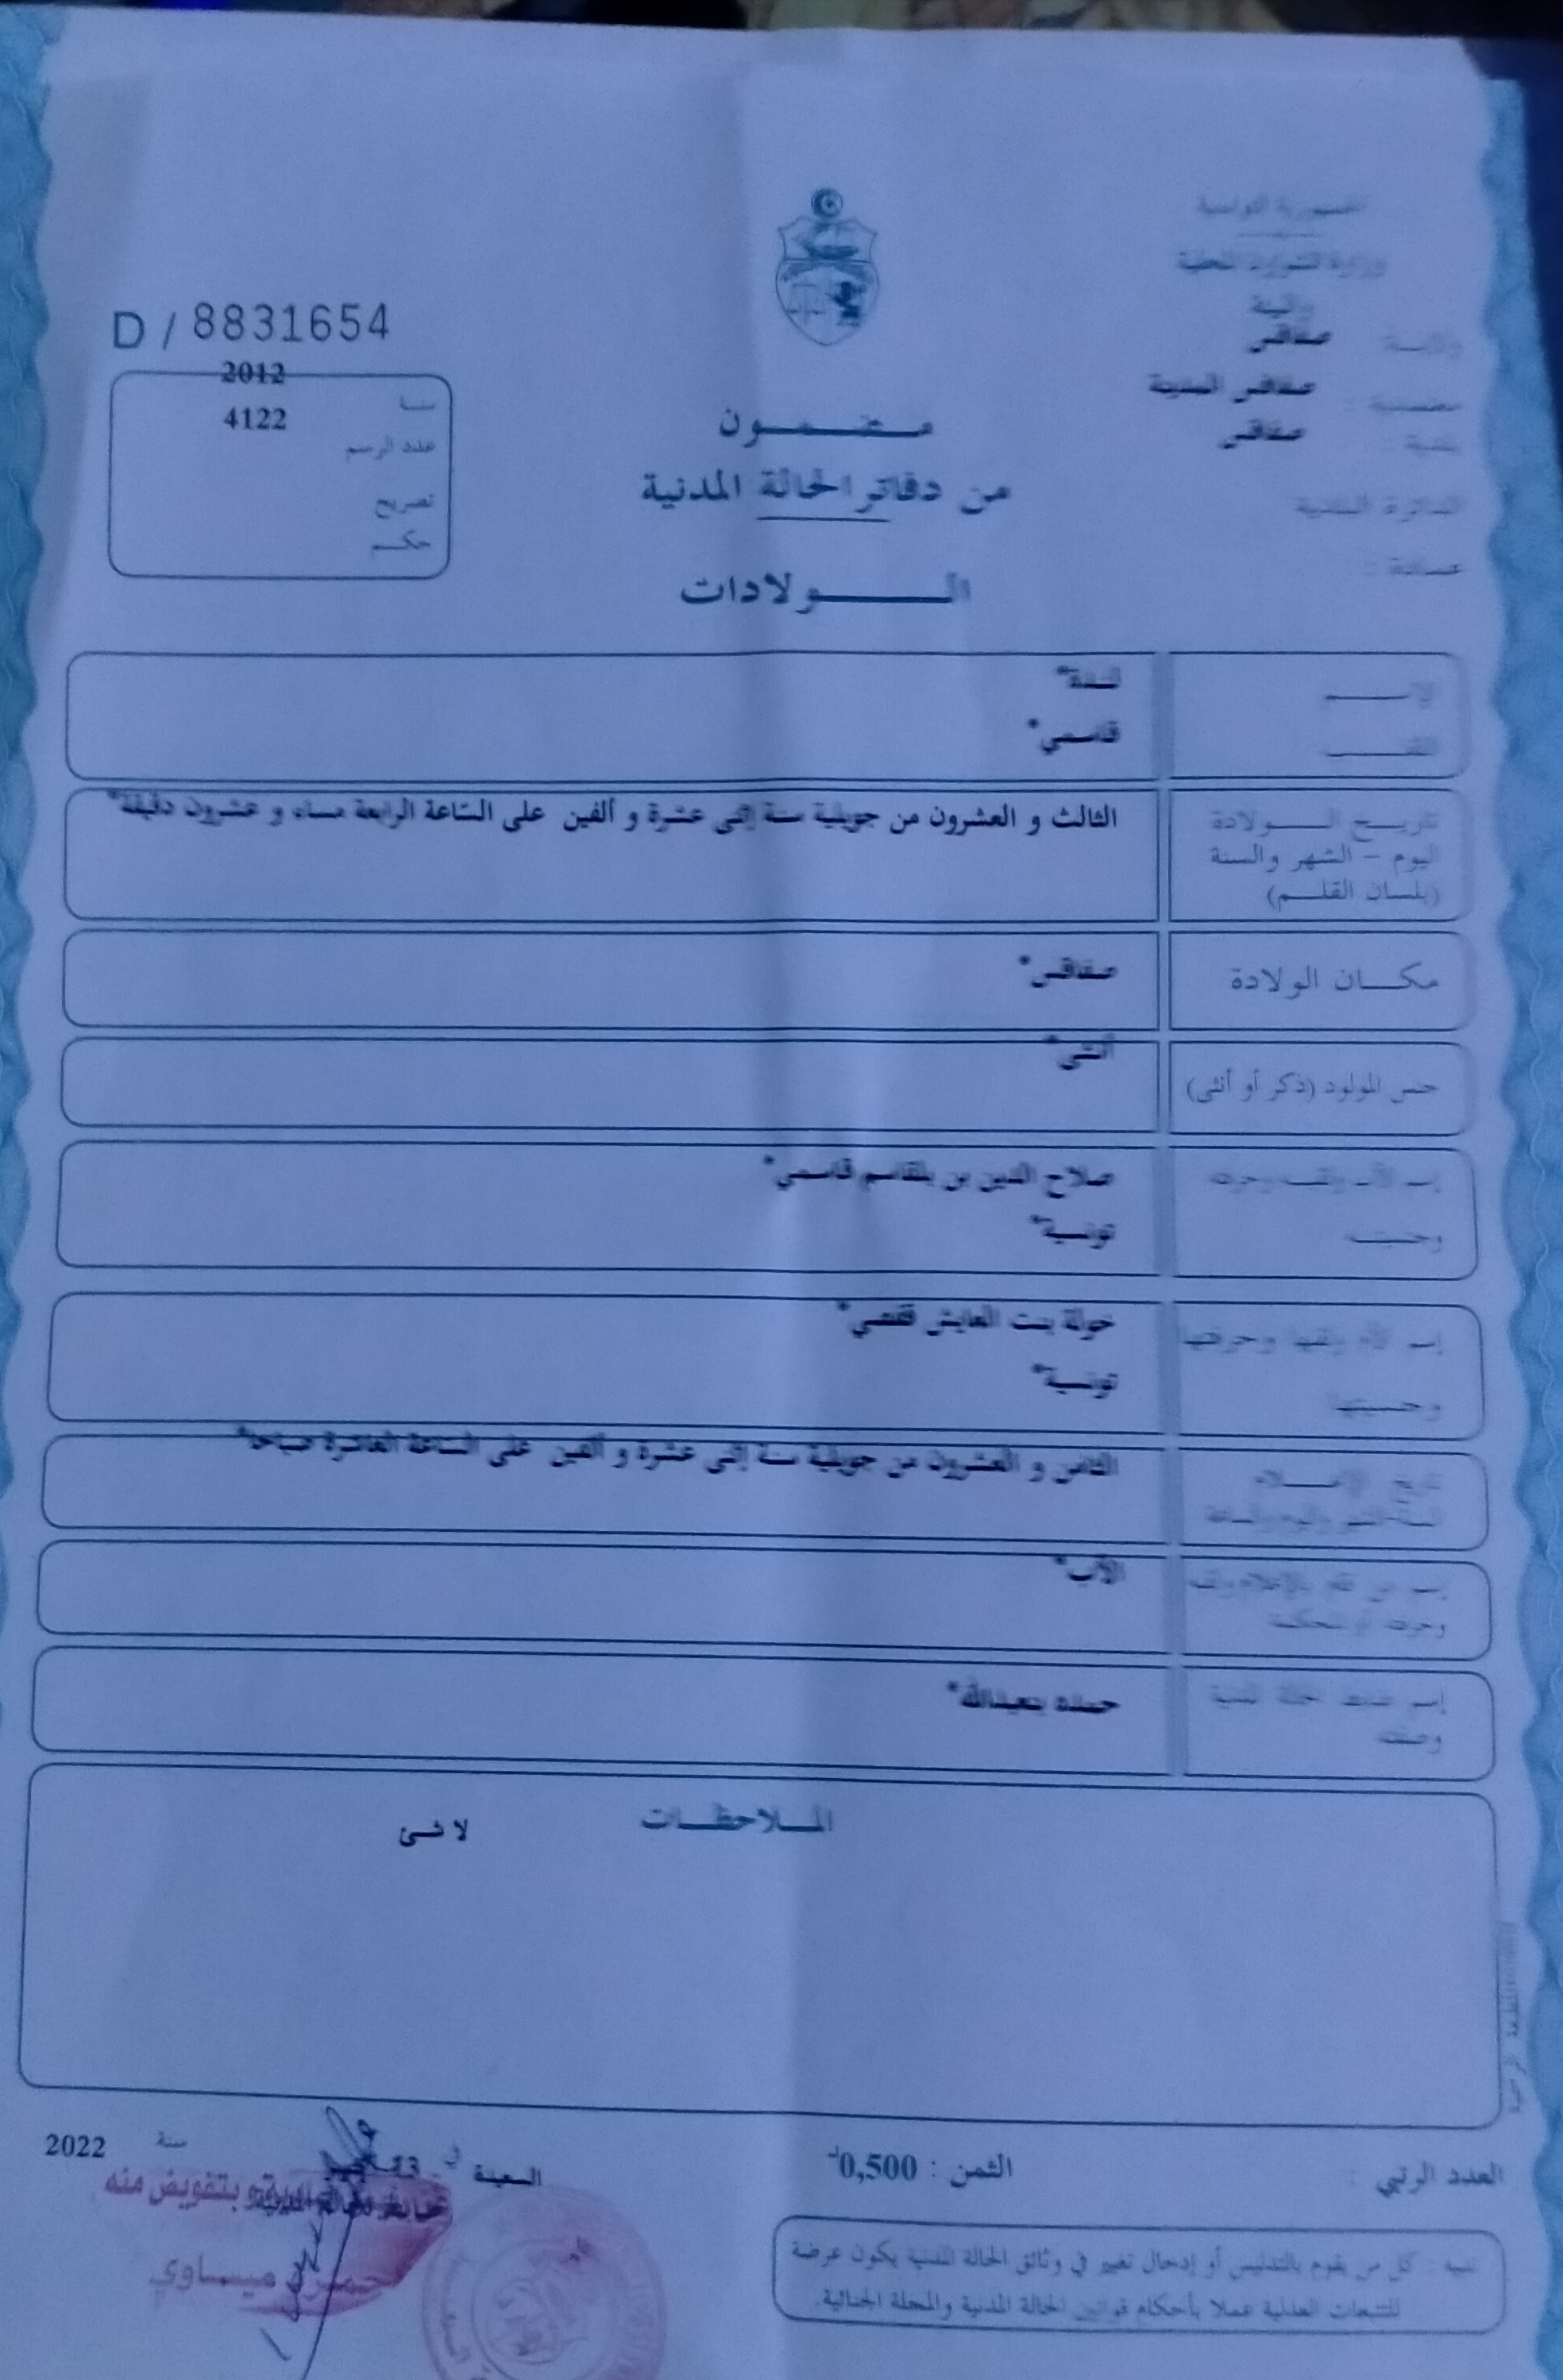 الجمهورية التونسية
وزارة الشؤون المحلية
ولاية
صفاقس
معتمدية : صفاقس المدينة
بلدية : صفاقس
الدائرة البلدية
عمادة :
D / 8831654
سنة 2012
عدد الرسم 4122
تصريح
حكم
مضمون
من دفاتر الحالة المدنية
الولادات
الاسم
اللقب قاسمي*
تاريخ الولادة الثالث و العشرون من جويلية سنة إثنى عشرة و ألفين على الساعة الرابعة مساء و عشرون دقيقة*
اليوم - الشهر والسنة
(بلسان القلم)
مكان الولادة صفاقس*
جنس المولود (ذكر أو أنثى) أنثى*
إسم الأب ولقبه وحرفته صلاح الدين بن بلقاسم قاسمي*
وجنسيته تونسية*
إسم الأم ولقبها وحرفتها خولة بنت العايش قفصي*
وجنسيتها تونسية*
تاريخ الإعلام الثامن و العشرون من جويلية سنة إثنى عشرة و ألفين على الساعة العاشرة صباحا*
السنة-الشهر واليوم والساعة
إسم من قام بالإعلام ولقبه الأب*
وحرفته أو المحكمة
إسم ضابط الحالة المدنية بنعبدالله*
وصفته
الملاحظات
لا شئ
العدد الرتبي :
الثمن : 0,500
في 13
سنة 2022
بتفويض منه
ميساوي
تنبيه : كل من يقوم بالتدليس أو إدخال تغيير في وثائق الحالة المدنية يكون عرضة
للتتبعات العدلية عملا بأحكام قوانين الحالة المدنية والمجلة الجنائية.